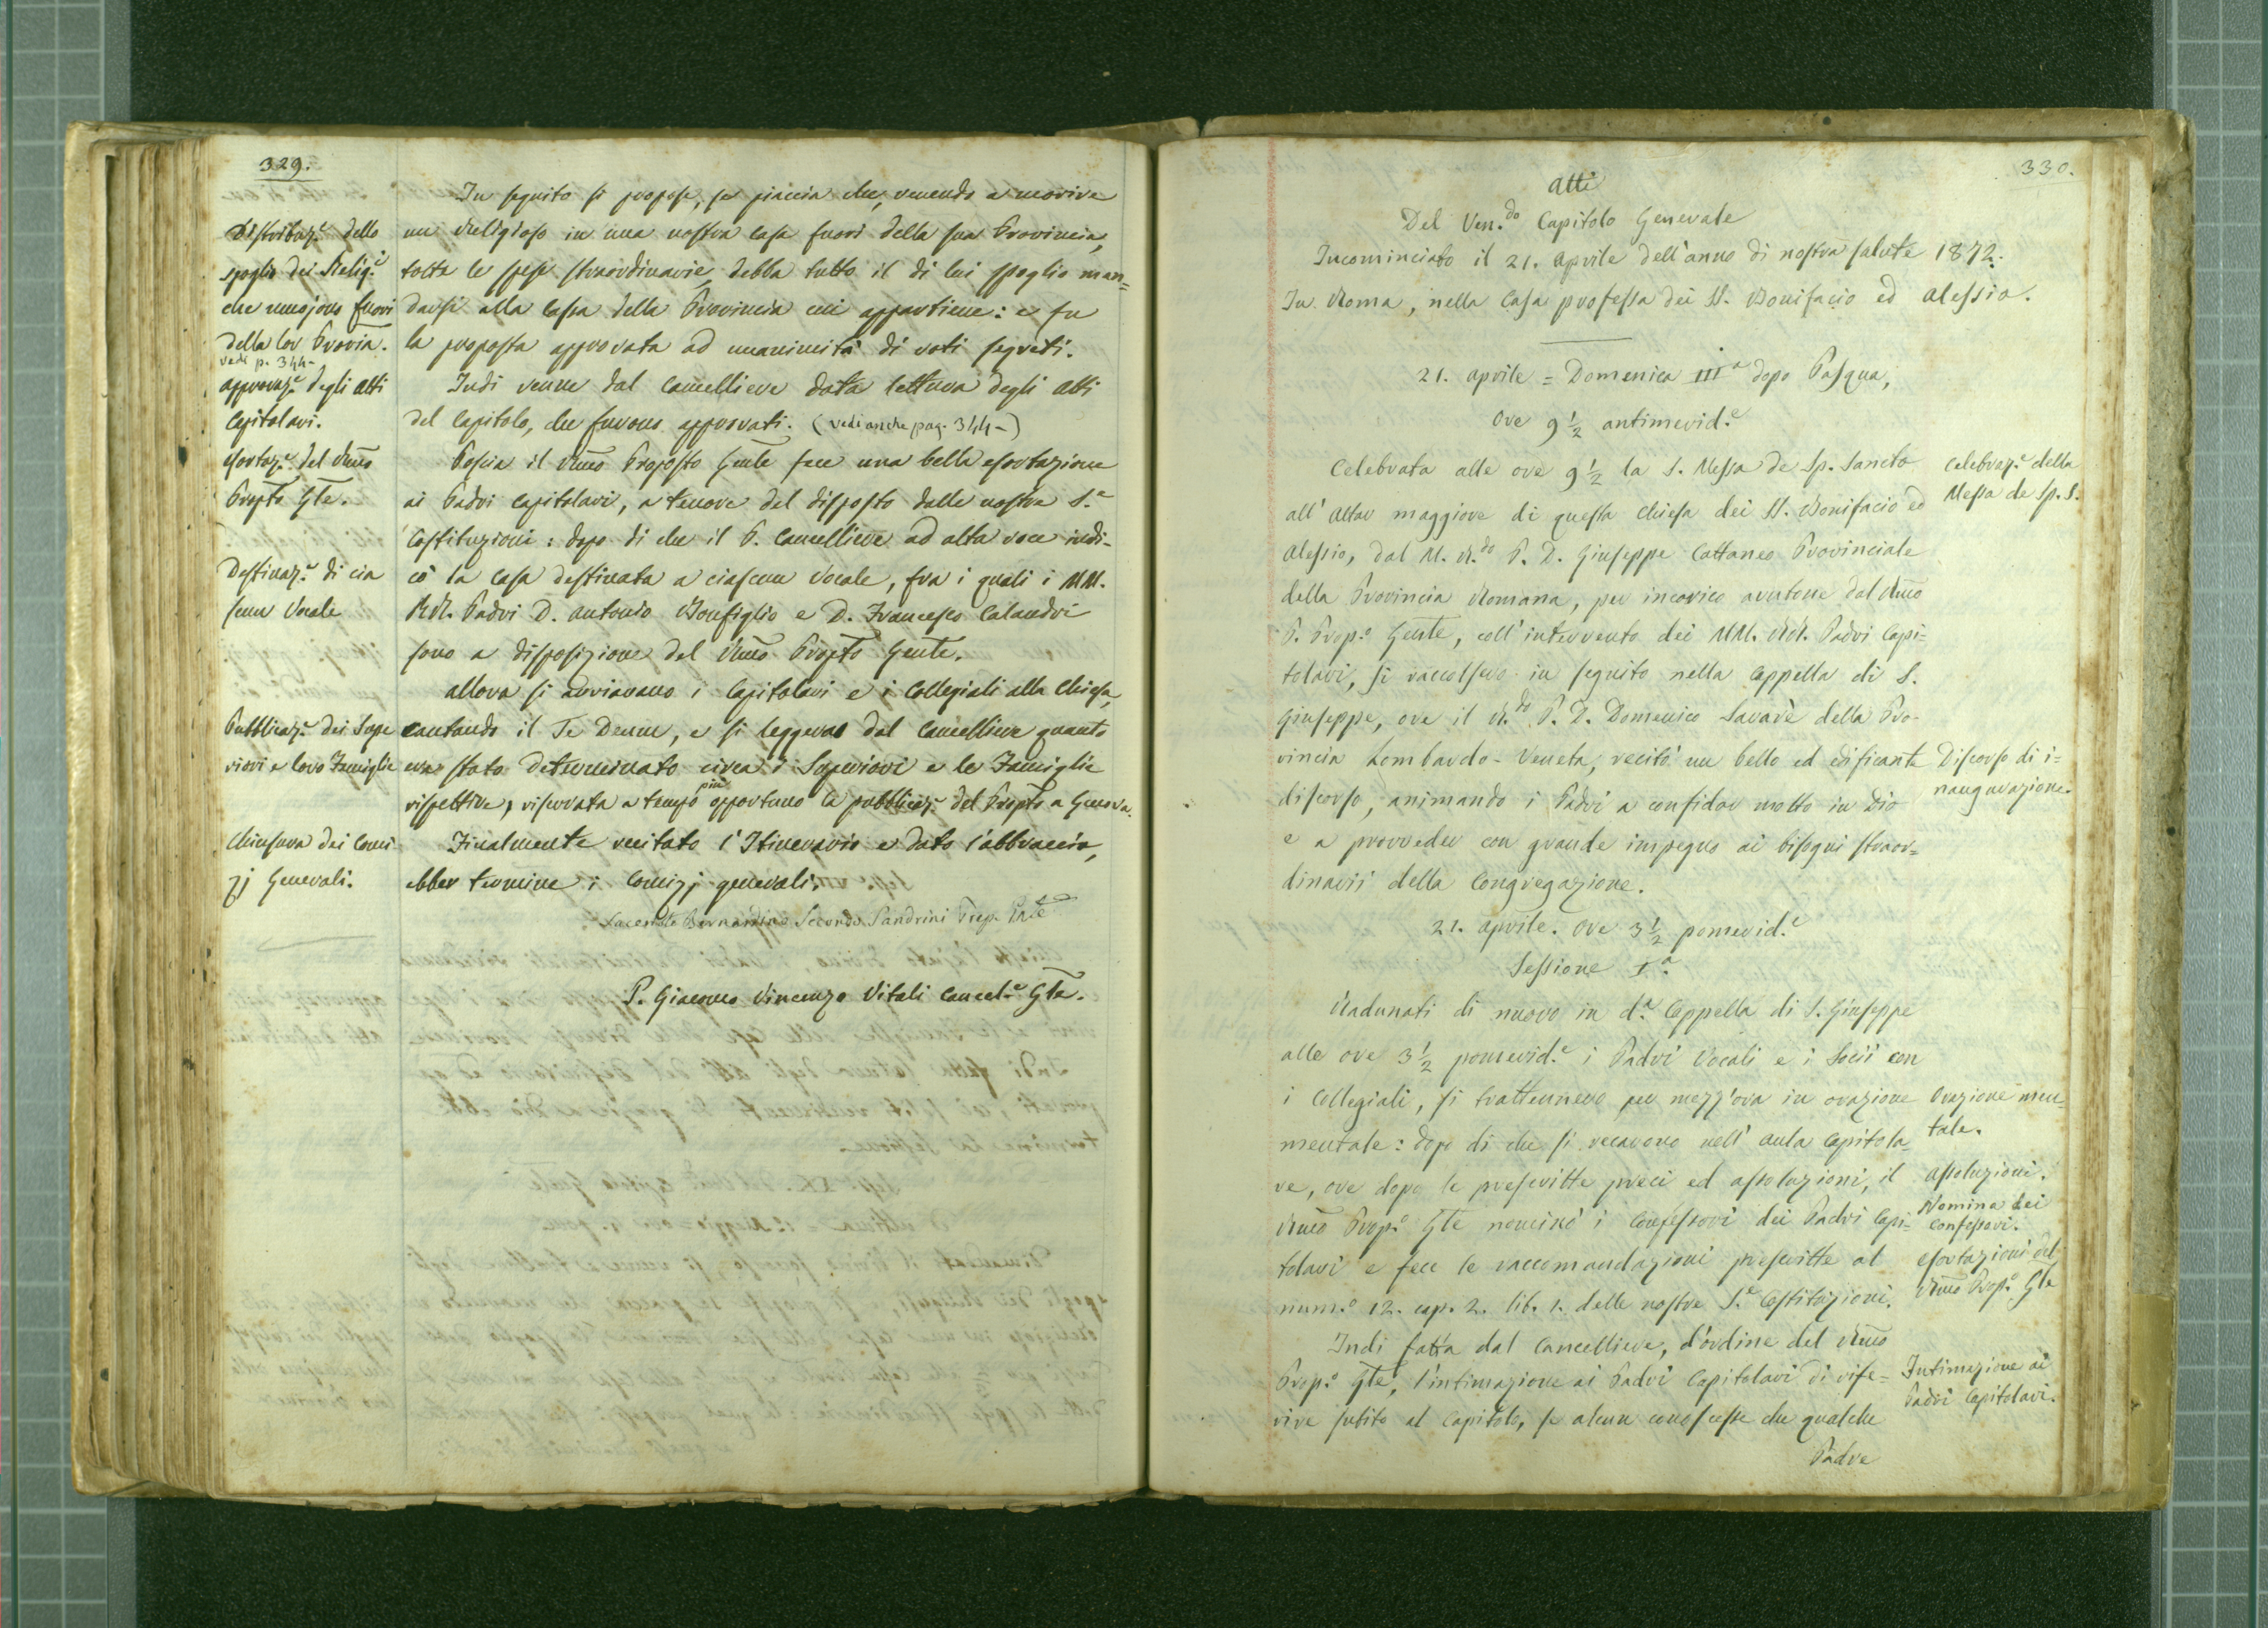 329.
In seguito si propose, se piaccia che, venendo a morire
un Religioso in una nostra Casa fuori della sua Provincia,
tolte le spese straordinarie, debba tutto il di lui spoglio man=
darsi alla Cassa della Provincia cui appartiene: e fu
la proposta approvata ad unanimità di voti segreti.
Distribuz.e dello
spoglio dei Relig.i
che muojono fuori
della lor Provia.
vedi p. 344-
Indi venne dal Cancelliere data lettura degli Atti
del Capitolo, che furono approvati. (vedi anche pag. 344-)
approvaz.e degli Atti
Capitolari.
Poscia il Rmo Proposto Gnle fece una bella esortazione
ai Padri Capitolari, a tenore del disposto dalle nostre S.e
Costituzioni: dopo di che il P. Cancelliere ad alta voce indi-
cò la Casa destinata a ciascun Vocale, fra i quali i MM.
RR. Padri D. Antonio Bonfiglio e D. Francesco Calandri
sono a disposizione del Rmo Propto Gnle.
esortaz.e del Rmo
Propto Gle.
Destinaz.e di cia
scun Vocale
allora si avviarono i Capitolari e i Collegiali alla Chiesa,
cantando il Te Deum, e si leggeva dal Cancelliere quanto
era stato determinato circa i Superiori e le Famiglie
rispettive, riservata a tempo più opportuno la pubblicaz.e del Propto a Genova.
Pubblicaz.e dei Supe
riori e loro Famiglie
Finalmente recitato l'Itinerario e dato l'abbraccio,
ebber termine i Comizj generali.
Chiusura dei Comi
zj Generali.
Sacerdote Bernardino Secondo Sandrini Prep. Gale
P. Giacomo Vincenzo Vitali Cancel.e Gle.
330.
Atti
Del Ven.do Capitolo Generale
Incominciato il 21. Aprile dell'anno di nostra salute 1872.
In Roma, nella Casa professa dei SS. Bonifacio ed Alessio.
21. Aprile = Domenica III.a dopo Pasqua,
Ore 9 1/2 antimerid.e
Celebrata alle ore 9 1/2 la S. Messa de Sp. Sancto
all'Altar maggiore di questa Chiesa dei SS. Bonifacio ed
Alessio, dal M. R.do P. D. Giuseppe Cattaneo Provinciale
della Provincia Romana, per incarico avutone dal Rmo
P. Prop.o Gnle, coll'intervento dei MM. RR. Padri Capi=
tolari, si raccolsero in seguito nella Cappella di S.
Giuseppe, ove il R.do P. D. Domenico Savarè della Pro-
vincia Lombardo-Veneta, recitò un bello ed edificante
discorso, animando i Padri a confidar molto in Dio
e a provveder con grande impegno ai bisogni straor=
dinarii della Congregazione.
Celebraz.e della
Messa de Sp. S.
Discorso di i=
naugurazione.
21. Aprile. Ore 3 1/2 pomerid.e
Sessione I.a
Radunati di nuovo in d.a Cappella di S. Giuseppe
alle ore 3 1/2 pomerid.e i Padri Vocali e i Socii con
i Collegiali, si trattennero per mezz'ora in orazione
mentale: dopo di che si recarono nell'Aula Capitola-
re, ove dopo le prescritte preci ed assoluzioni, il
Rmo Prop.o Gle nominò i Confessori dei Padri Capi-
tolari e fece le raccomandazioni prescritte al
num.o 12. cap. 2. lib. 1. delle nostre S.e Costituzioni.
Orazione men-
tale.
Assoluzioni.
Nomina dei
Confessori.
esortazioni del
Rmo Prop.o Gle
Indi fatta dal Cancelliere, d'ordine del Rmo
Prop.o Gle, l'intimazione ai Padri Capitolari di rife=
rire subito al Capitolo, se alcun conoscesse che qualche
Padre
Intimazione ai
Padri Capitolari.